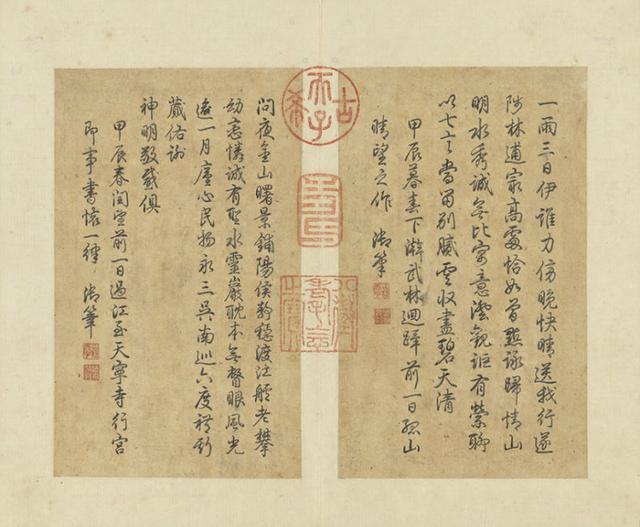 一雨三日伊誰力傍晚快晴送我行遂
陟林逋家高處恰如曾點詠歸情山
明水秀誠無比寄意澄觀詎有縈聊
以七言當留別膩雲收盡碧天清
甲辰暮春下澣武林迴蹕前一日孤山
晴望之作 御筆
古稀天子
壽
八徵耄念之寶
問夜金山曙景鋪陽侯靜穩渡江艫老攀
幼戀憐誠有聖水靈巖耽本無瞥眼風光
一月廑心民物永三吳南巡六度
佑謝
神明敬感俱
甲辰春閏望前一日過江至天寧寺行宮
即事書懷一律 御筆